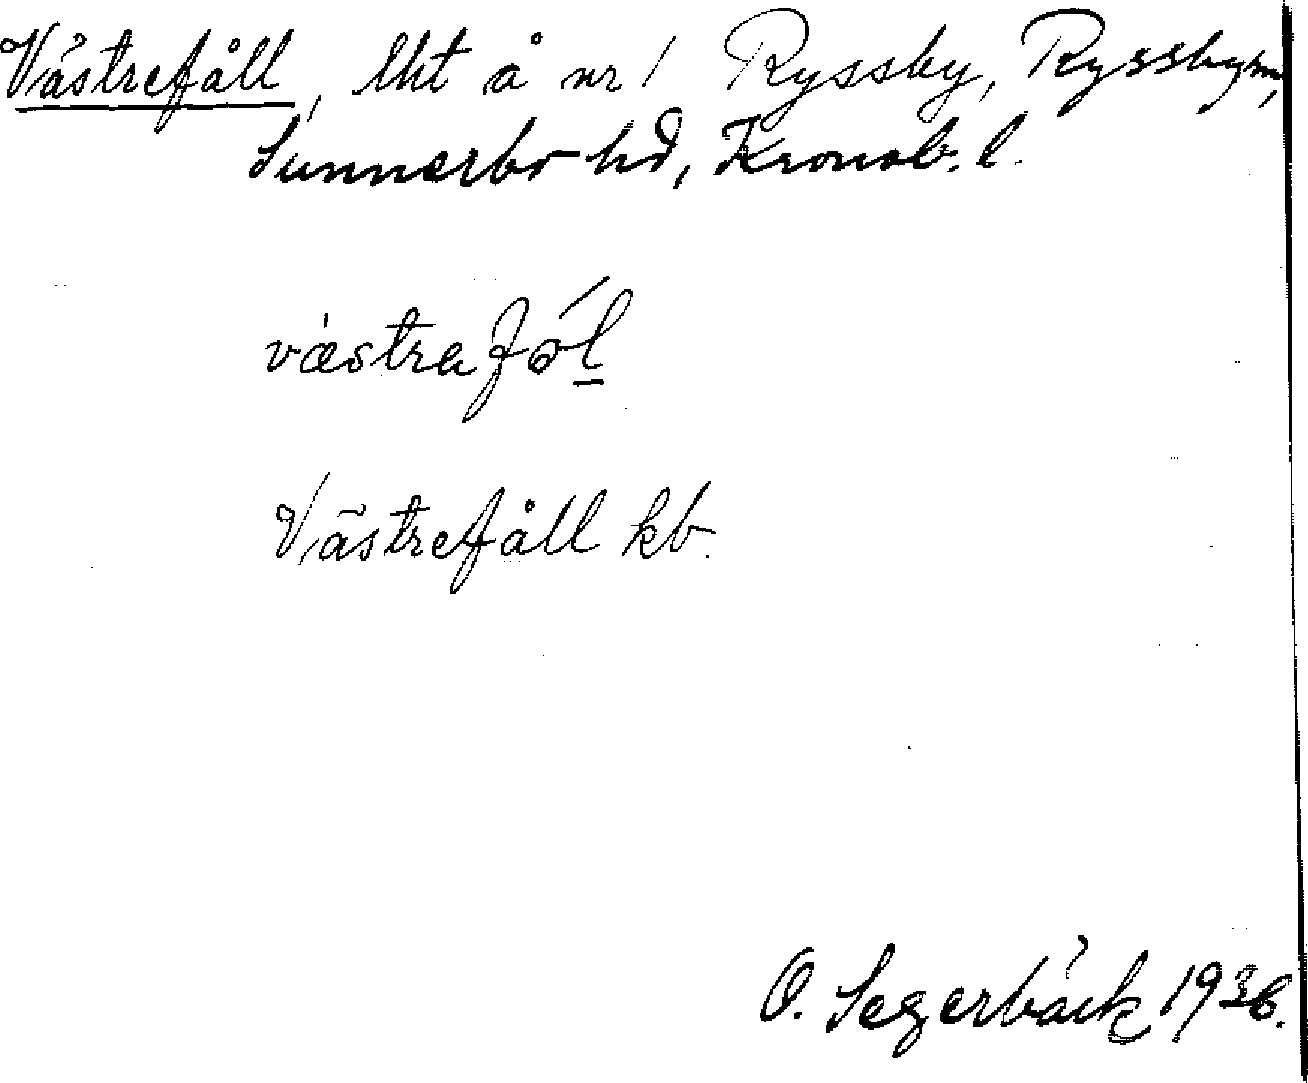 Västrefåll, lht å nr 1 Ryssby, Ryssby sn,
Sunnerbo hd, Kronob. l.
västrafól
Västrefåll kb.
O. Segerbäck 1936.